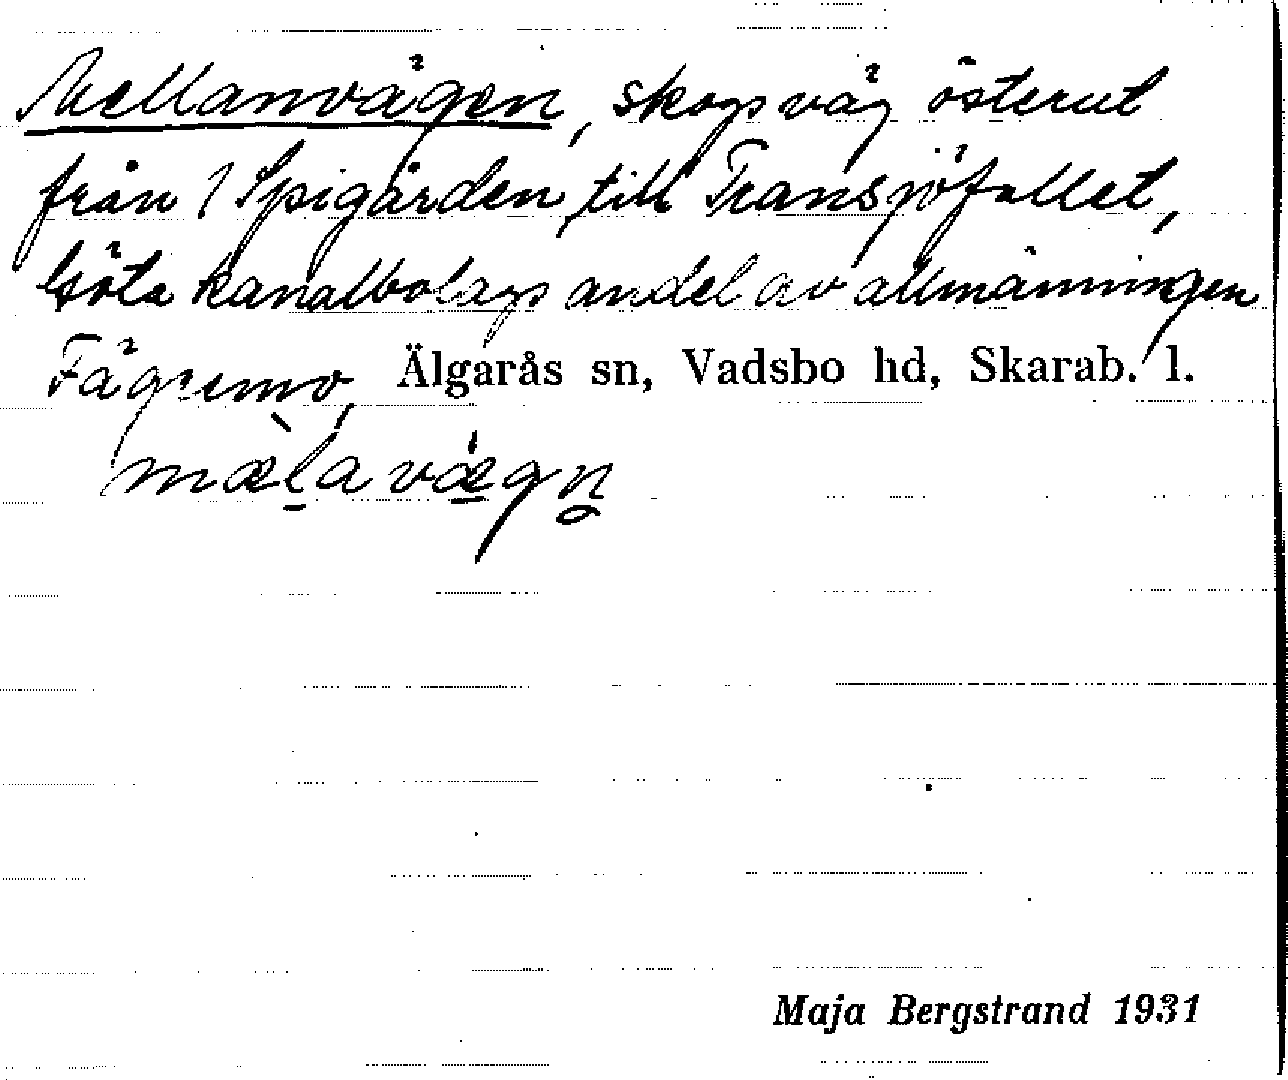 Mellanvägen, skogsväg österut
från 1 Spigården, till Transjöfallet,
Göta kanalbolags andel av allmänningen
Fägremo, Älgarås sn, Vadsbo hd, Skarab. l.
mæ̀l̠a vǽ̠gn̥
Maja Bergstrand 1931